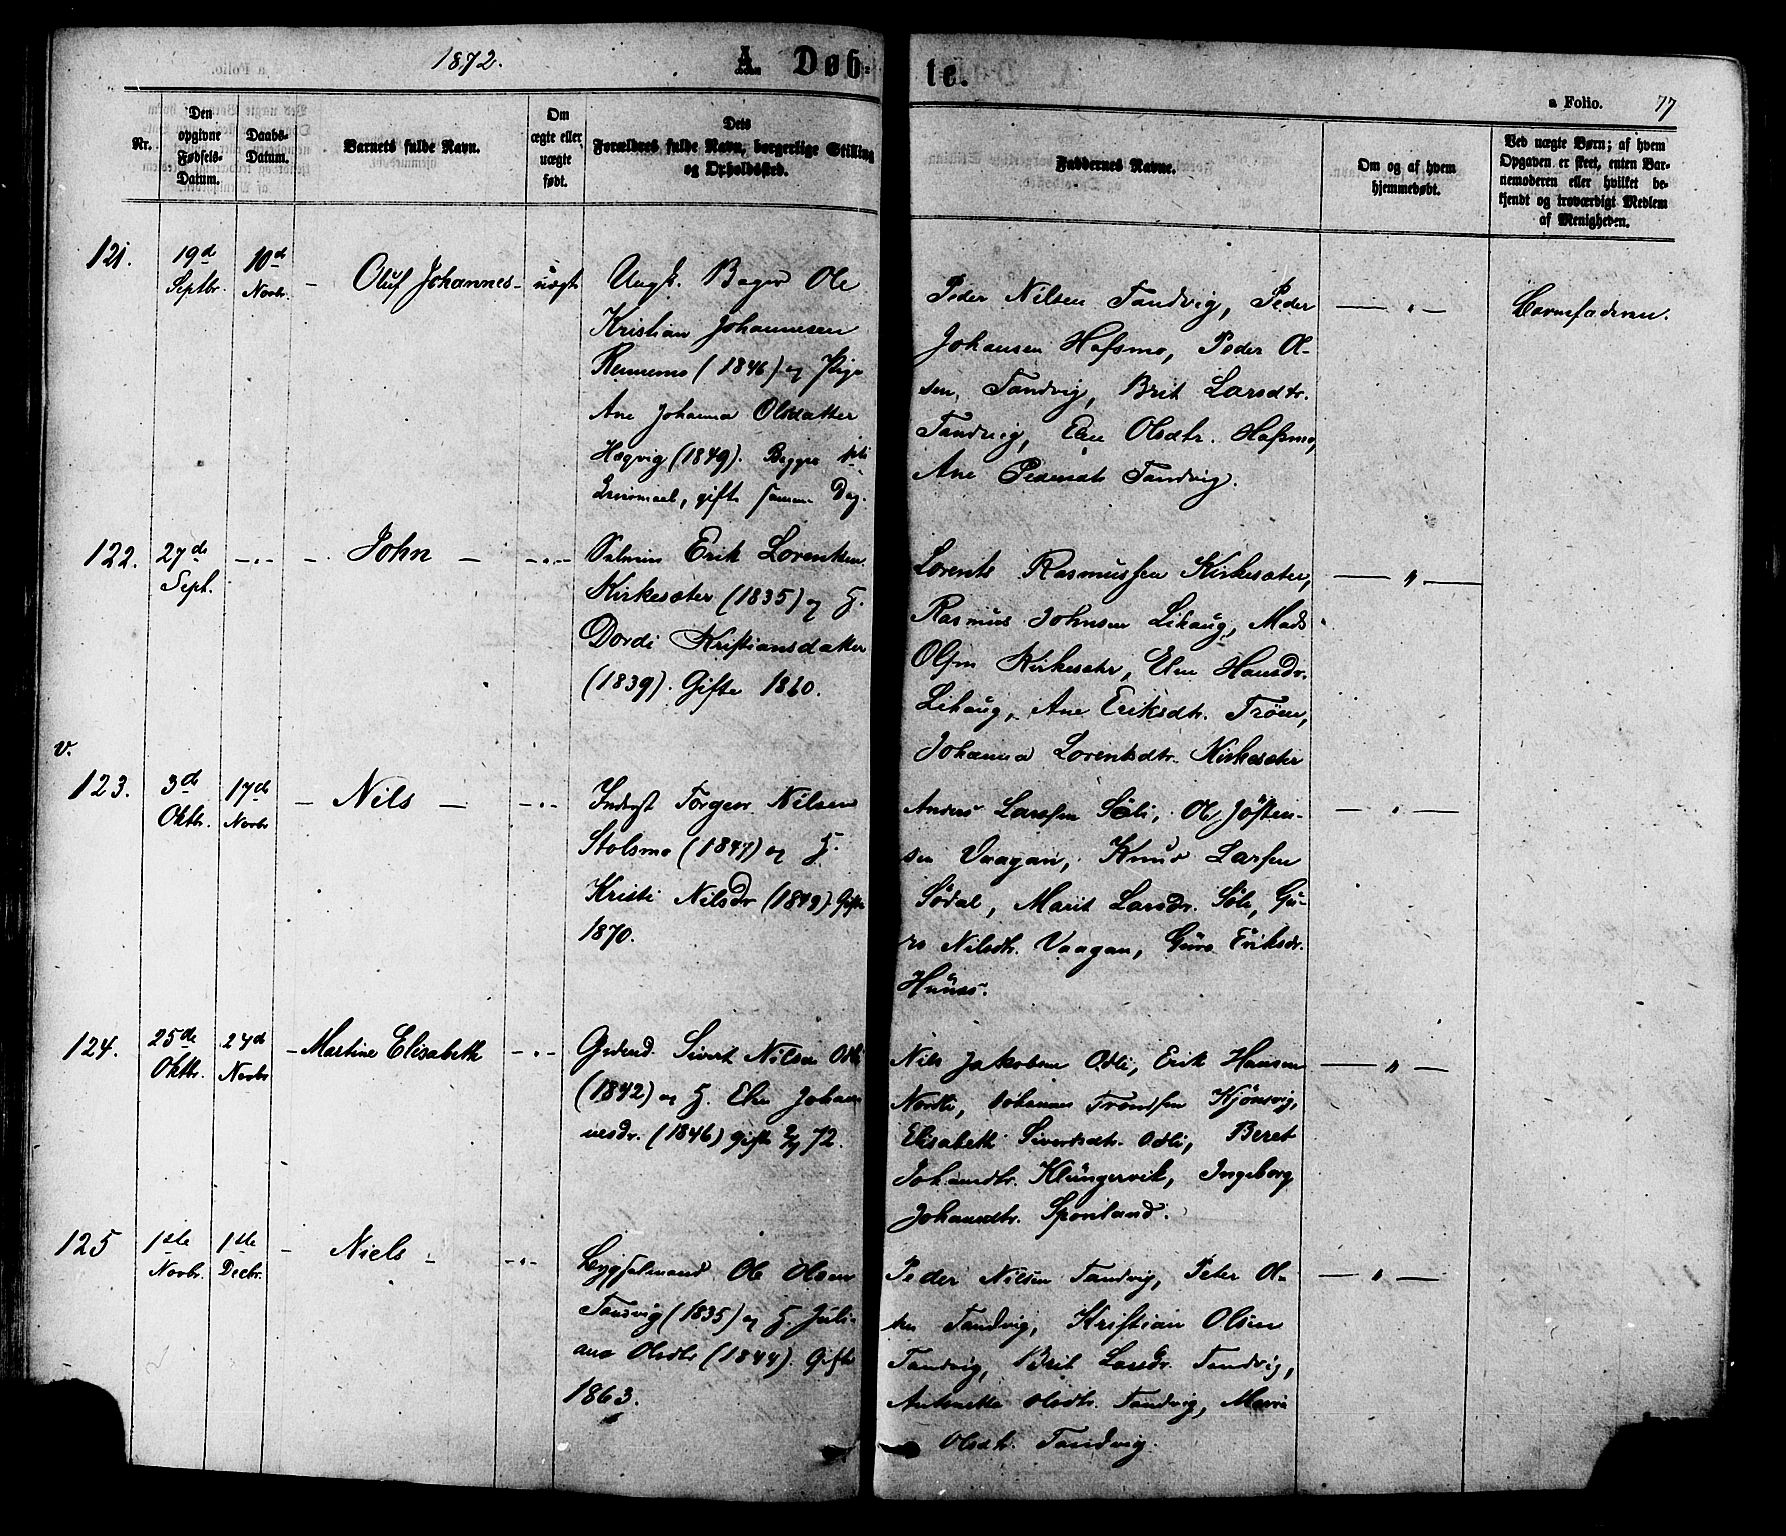 1872.
A. Døb-
te.
a Folio. 77
Nr.
Den
opgivne
Fødsels-
Datum.
Daabs-
Datum.
Barnets fulde Navn.
Om
ægte eller
uægte
født.
Dets
Forældres fulde Navn, borgerlige Stilling
og Opholdssted.
Faddernes Navne.
Om og af hvem
hjemmedøbt.
Ved uægte Børn; af hvem
Opgaven er skeet, enten Bar-
nemoderen eller hvilket be-
kjendt og troværdigt Medlem
af Menigheden.
121.
19d
Septbr.
10d
Novbr.
Oluf Johannes
uægt
Ungk. Bager Ole
Kristian Johannesen
Rennemo (1846) og Pige
Ane Johanna Olsdatter
Hægvig (1849). Begges 1ste
Leiermaal, gift samme Dag.
Peder Nilsen Tandvig, Peder
Johansen Hafsmo, Peder Ol-
sen, Tandvig, Brit Larsdtr.
Tandvig, Elen Olsdtr. Hafsmo,
Ane Pedersdtr Tandvig.
— " —
Barnefaderen.
122.
27de
Sept.
— " —
John
— " —
Erik Lorentsen
Kirkesæter (1835) og H.
Dordi Kristiansdatter
(1839). Gifte 1860.
Lorents Rasmussen Kirkesæter,
Rasmus Johnsen Lihaug, Mads
Olsen Kirkesæter, Elen Hansdr.
Lihaug, Ane Eriksdtr. Trøen,
Johanna Lorentsdtr. Kirkesæter
— " —
v.
123.
3de
Oktbr.
17de
Novbr
Nils
— " —
Inderst Torger Nilsen
Stolsmo (1847) og H.
Kristi Nilsdr (1843). Gifte
1870.
Anders Larssen Söli, Ole Jösten-
sen Vaagan, Knud Larsen
Södal, Marit Larsdr. Söli, Gu-
ro Nilsdtr. Vaagan, Guro Eriksdr.
— " —
124.
25de
Oktbr.
24d
Novbr
Martine Elisabeth
— " —
Sivert Nilsen Odli
(1842) og H. Elen Johan-
nesdr. (1846) gifte 72.
Nils Jakobsen Odli, Erik Hansen
Nordli, Johannes Trondsen Kjönsvig,
Elisabeth Sivertsdtr. Odli, Beret
Johansdtr. Klungervik, Ingeborg
Johansdtr. Sponland.
— " —
125
1ste
Novbr.
1ste
Decbr.
Niels
— " —
Bygselmand Ole Olsen
Tandvig (1835) og H. Juli-
ana Olsdtr (1844). Gifte
1863.
Peder Nilsen Tandvig, Peter Ol-
sen Tandvig, Kristian Olsen
Tandvig, Brit Larsdr. Tandvig,
Antonette Olsdtr. Tandvig, Marie
Olsdtr. Tandvig.
— " —